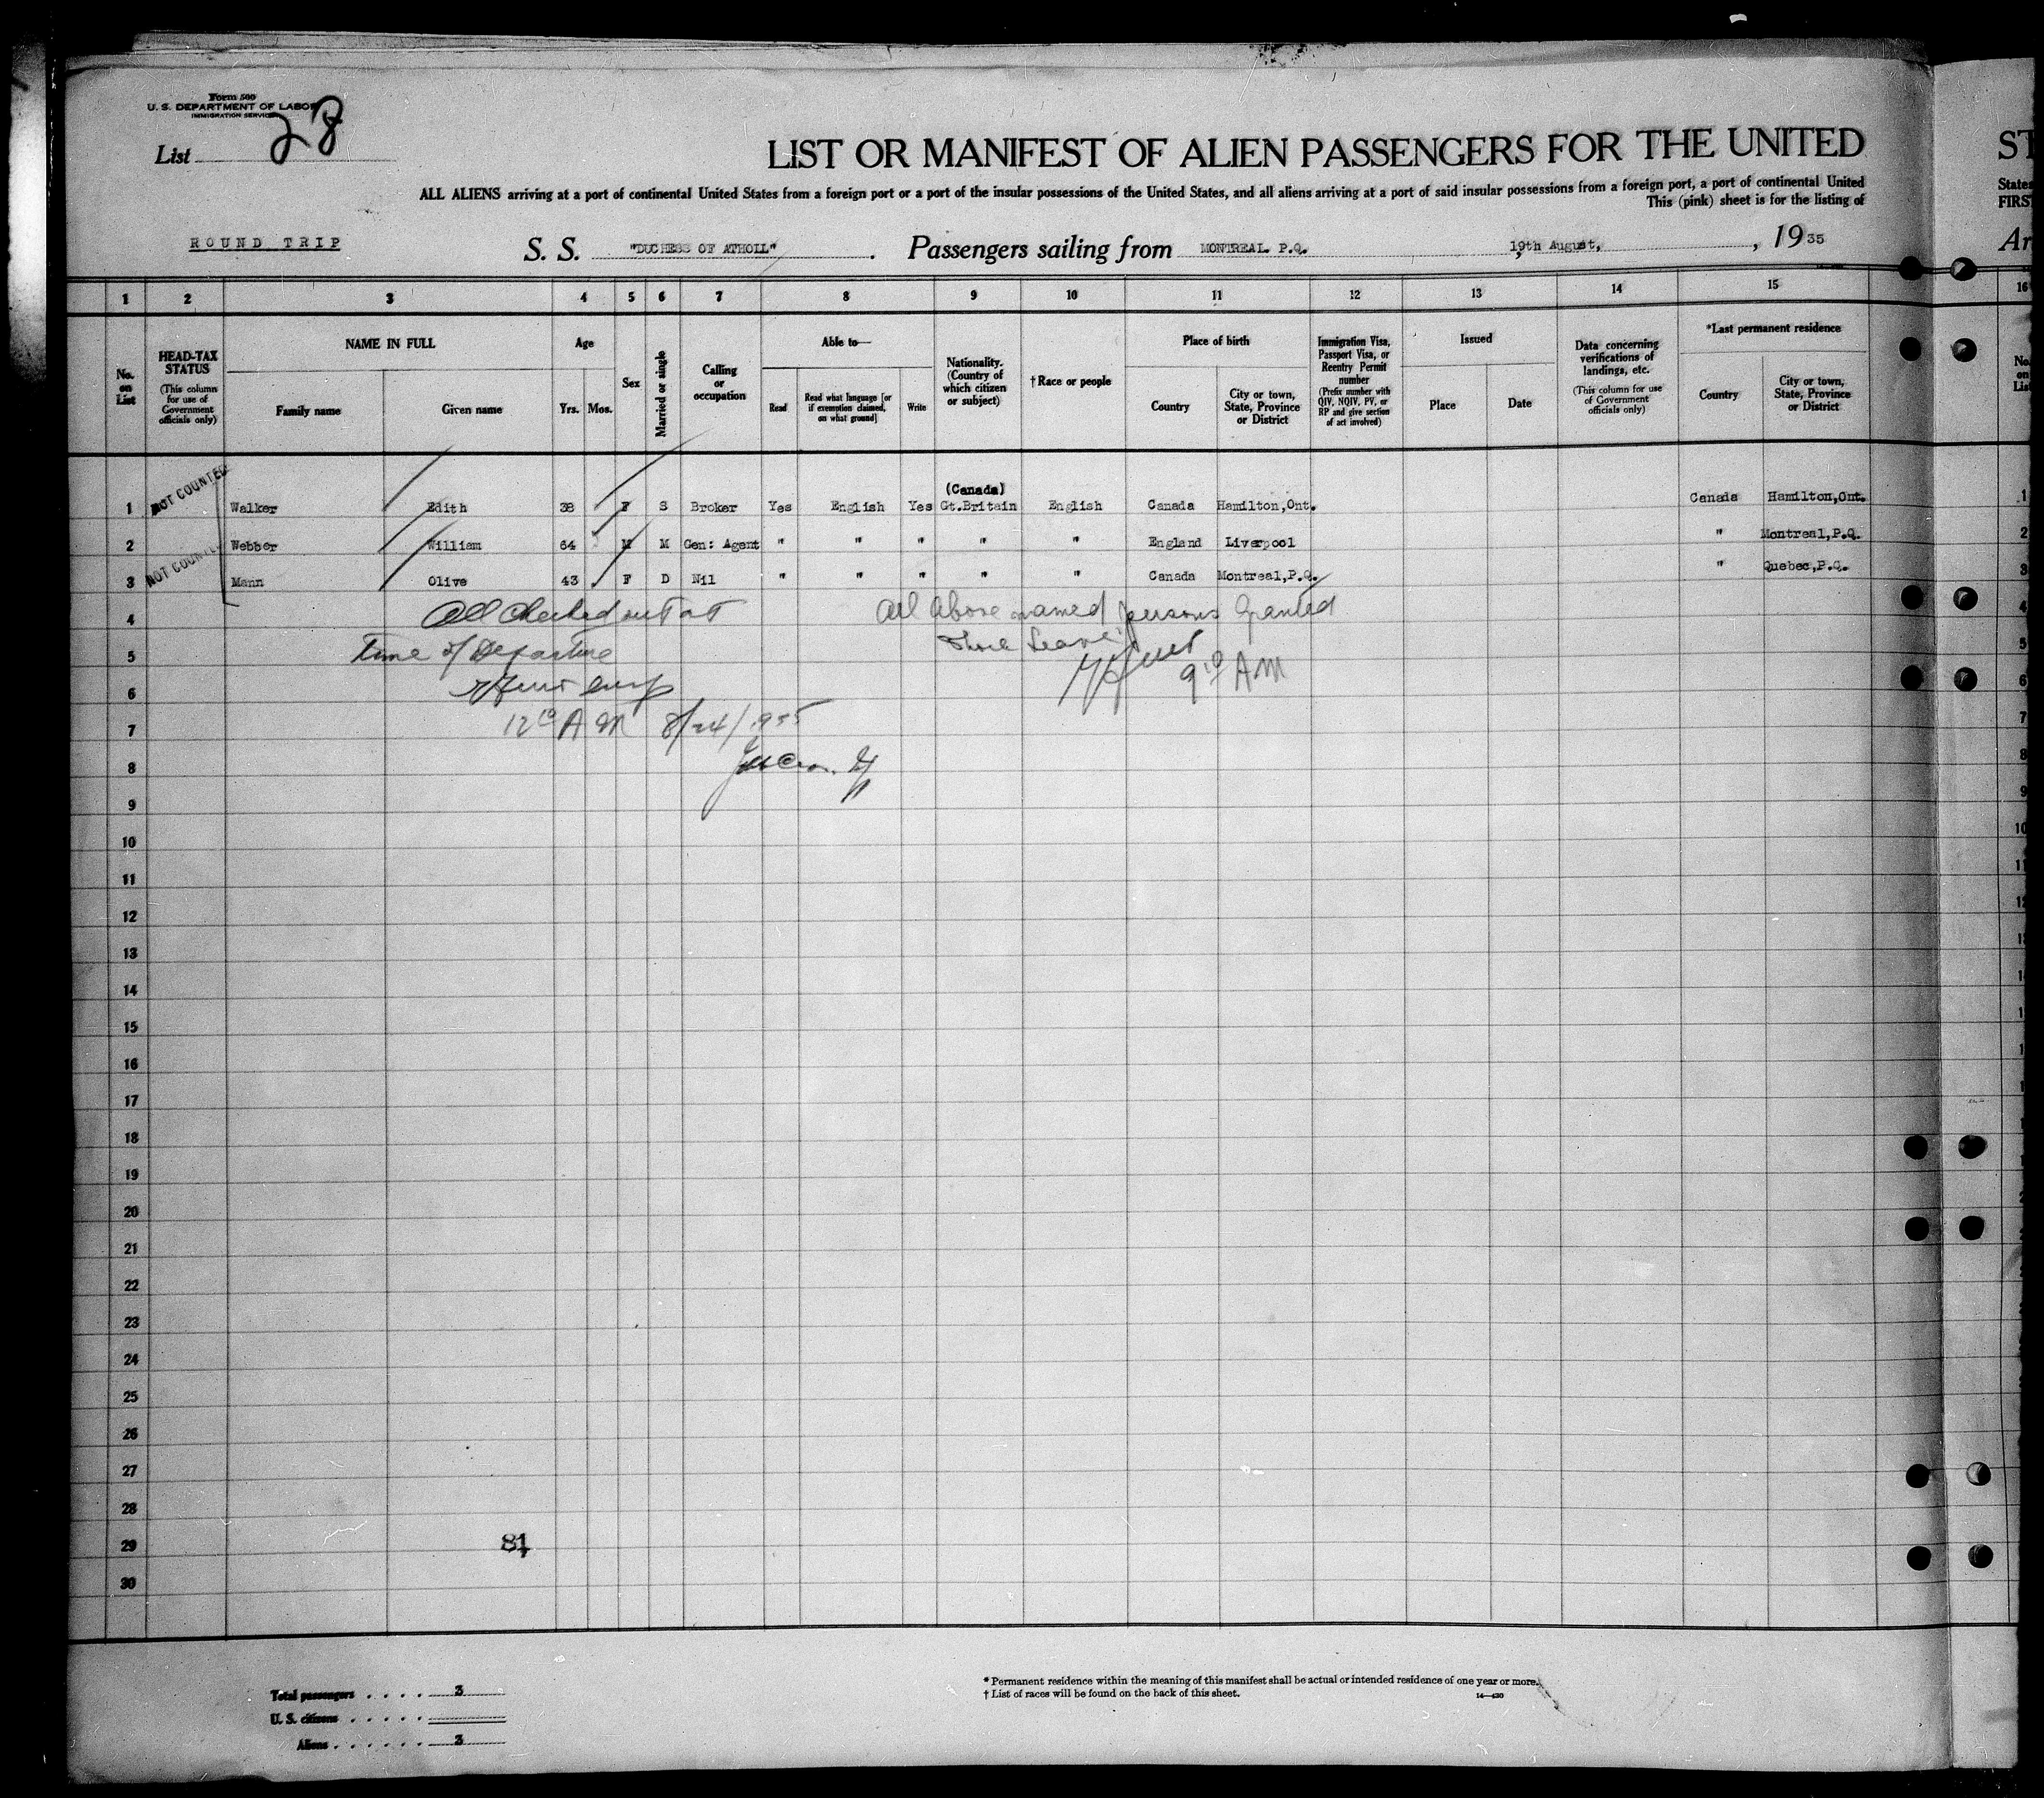 Form 500
U. S. DEPARTMENT OF LABOR
IMMIGRATION SERVICE
List 28
LIST OR MANIFEST OF ALIEN PASSENGERS FOR THE UNITED ST
ALL ALIENS arriving at a port of continental United States from a foreign port or a port of the insular possessions of the United States, and all aliens arriving at a port of said insular possessions from a foreign port, a port of continental United States
This (pink) sheet is for the listing of FIRST
ROUND TRIP S. S. "DUCHESS OF ATHOLL". Passengers sailing from MONTREAL P.Q. 19th August, , 1935 Ar
1 2 3 4 5 6 7 8 9 10 11 12 13 14 15 16
No. on List
HEAD-TAX STATUS (This column for use of Government officials only)
NAME IN FULL
Family name Given name
Age
Yrs. Mos.
Sex
Married or single
Calling or occupation
Able to—
Read
Read what language [or if exemption claimed, on what ground]
Write
Nationality. (Country of which citizen or subject)
† Race or people
Place of birth
Country
City or town, State, Province or District
Immigration Visa, Passport Visa, or Reentry Permit number (Prefix number with QIV, NQIV, PV, or RP and give section of act involved)
Issued
Place Date
Data concerning verifications of landings, etc. (This column for use of Government officials only)
*Last permanent residence
Country
City or town, State, Province or District
No. on List
NOT COUNTED
(Canada)
1 Walker Edith 38 F S Broker Yes English Yes Gt.Britain English Canada Hamilton,Ont. Canada Hamilton,Ont. 1
2 Webber William 64 M M Gen: Agent " " " " " England Liverpool " Montreal,P.Q. 2
NOT COUNTED
3 Mann Olive 43 F D Nil " " " " " Canada Montreal,P.Q. " Quebec,P.Q. 3
4 All Checked out at All Above named persons Granted 4
5 Time of Departure Shore Leave 5
6 9 10 AM 6
7 12 10 AM 8/24/1935 7
8 8
9 9
10 10
11 11
12
13
14
15
16
17
18
19
20
21
22
23
24
25
26
27
28
29 81
30
Total passengers . . . . . 3
U. S. citizens . . . . . .
Aliens . . . . . . 3
* Permanent residence within the meaning of this manifest shall be actual or intended residence of one year or more.
† List of races will be found on the back of this sheet. 14—430